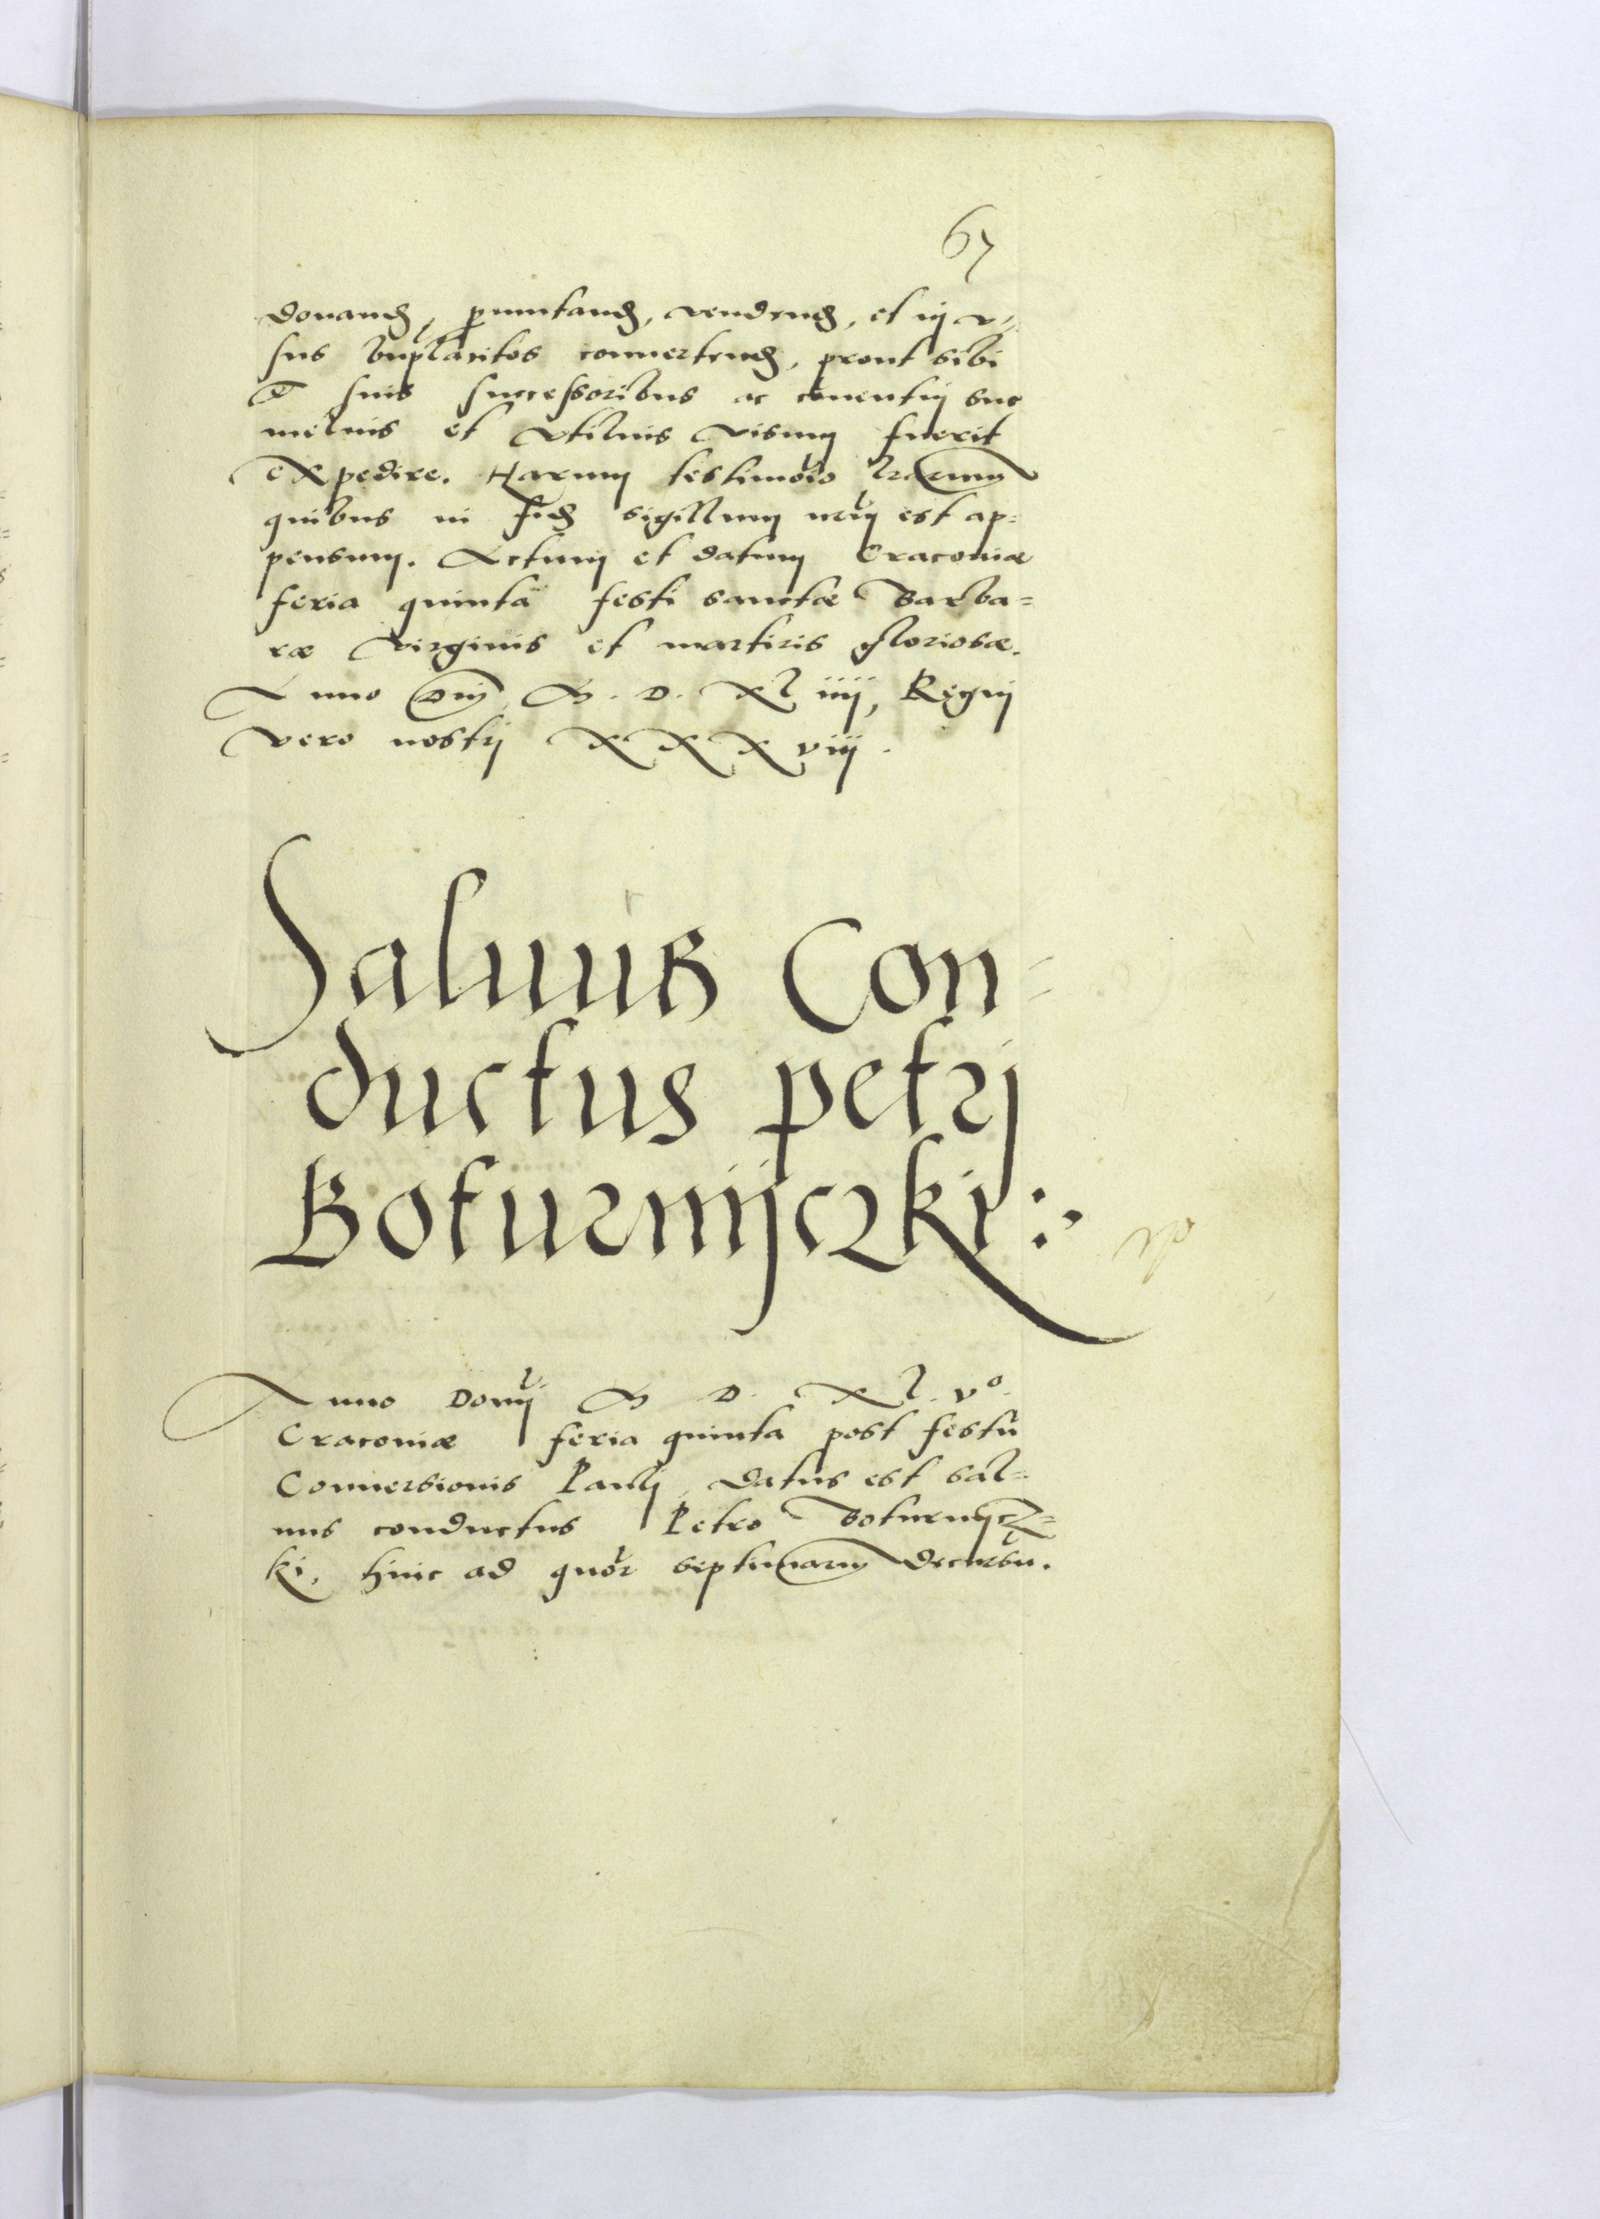 67
donand, pmutand, vendend, et in v=
sus bnplacitos conuertend, prout sibi
et suis successoribus ac conuentui suo
melius et vtilius visum fuerit
expedire. Harum testimoio lrarum
quibus in fid sigillum nrm est ap=
pensum. Actum et datum Cracoviæ
feria quinta festi sanctæ Barba=
ræ virginis et martiris gloriosæ.
Anno Dni M. D. XL iiij, Regni
vero nostri XXXviij.
Saluus Con=
ductus petri
Boturnijczki:
Anno Domi M D. XL. vo.
Cracoviæ feria quinta post festu
Conuersionis Pauli, datus est sal=
uus conductus Petro Boturnijcz=
ki, hinc ad quor septimanarum decursu.